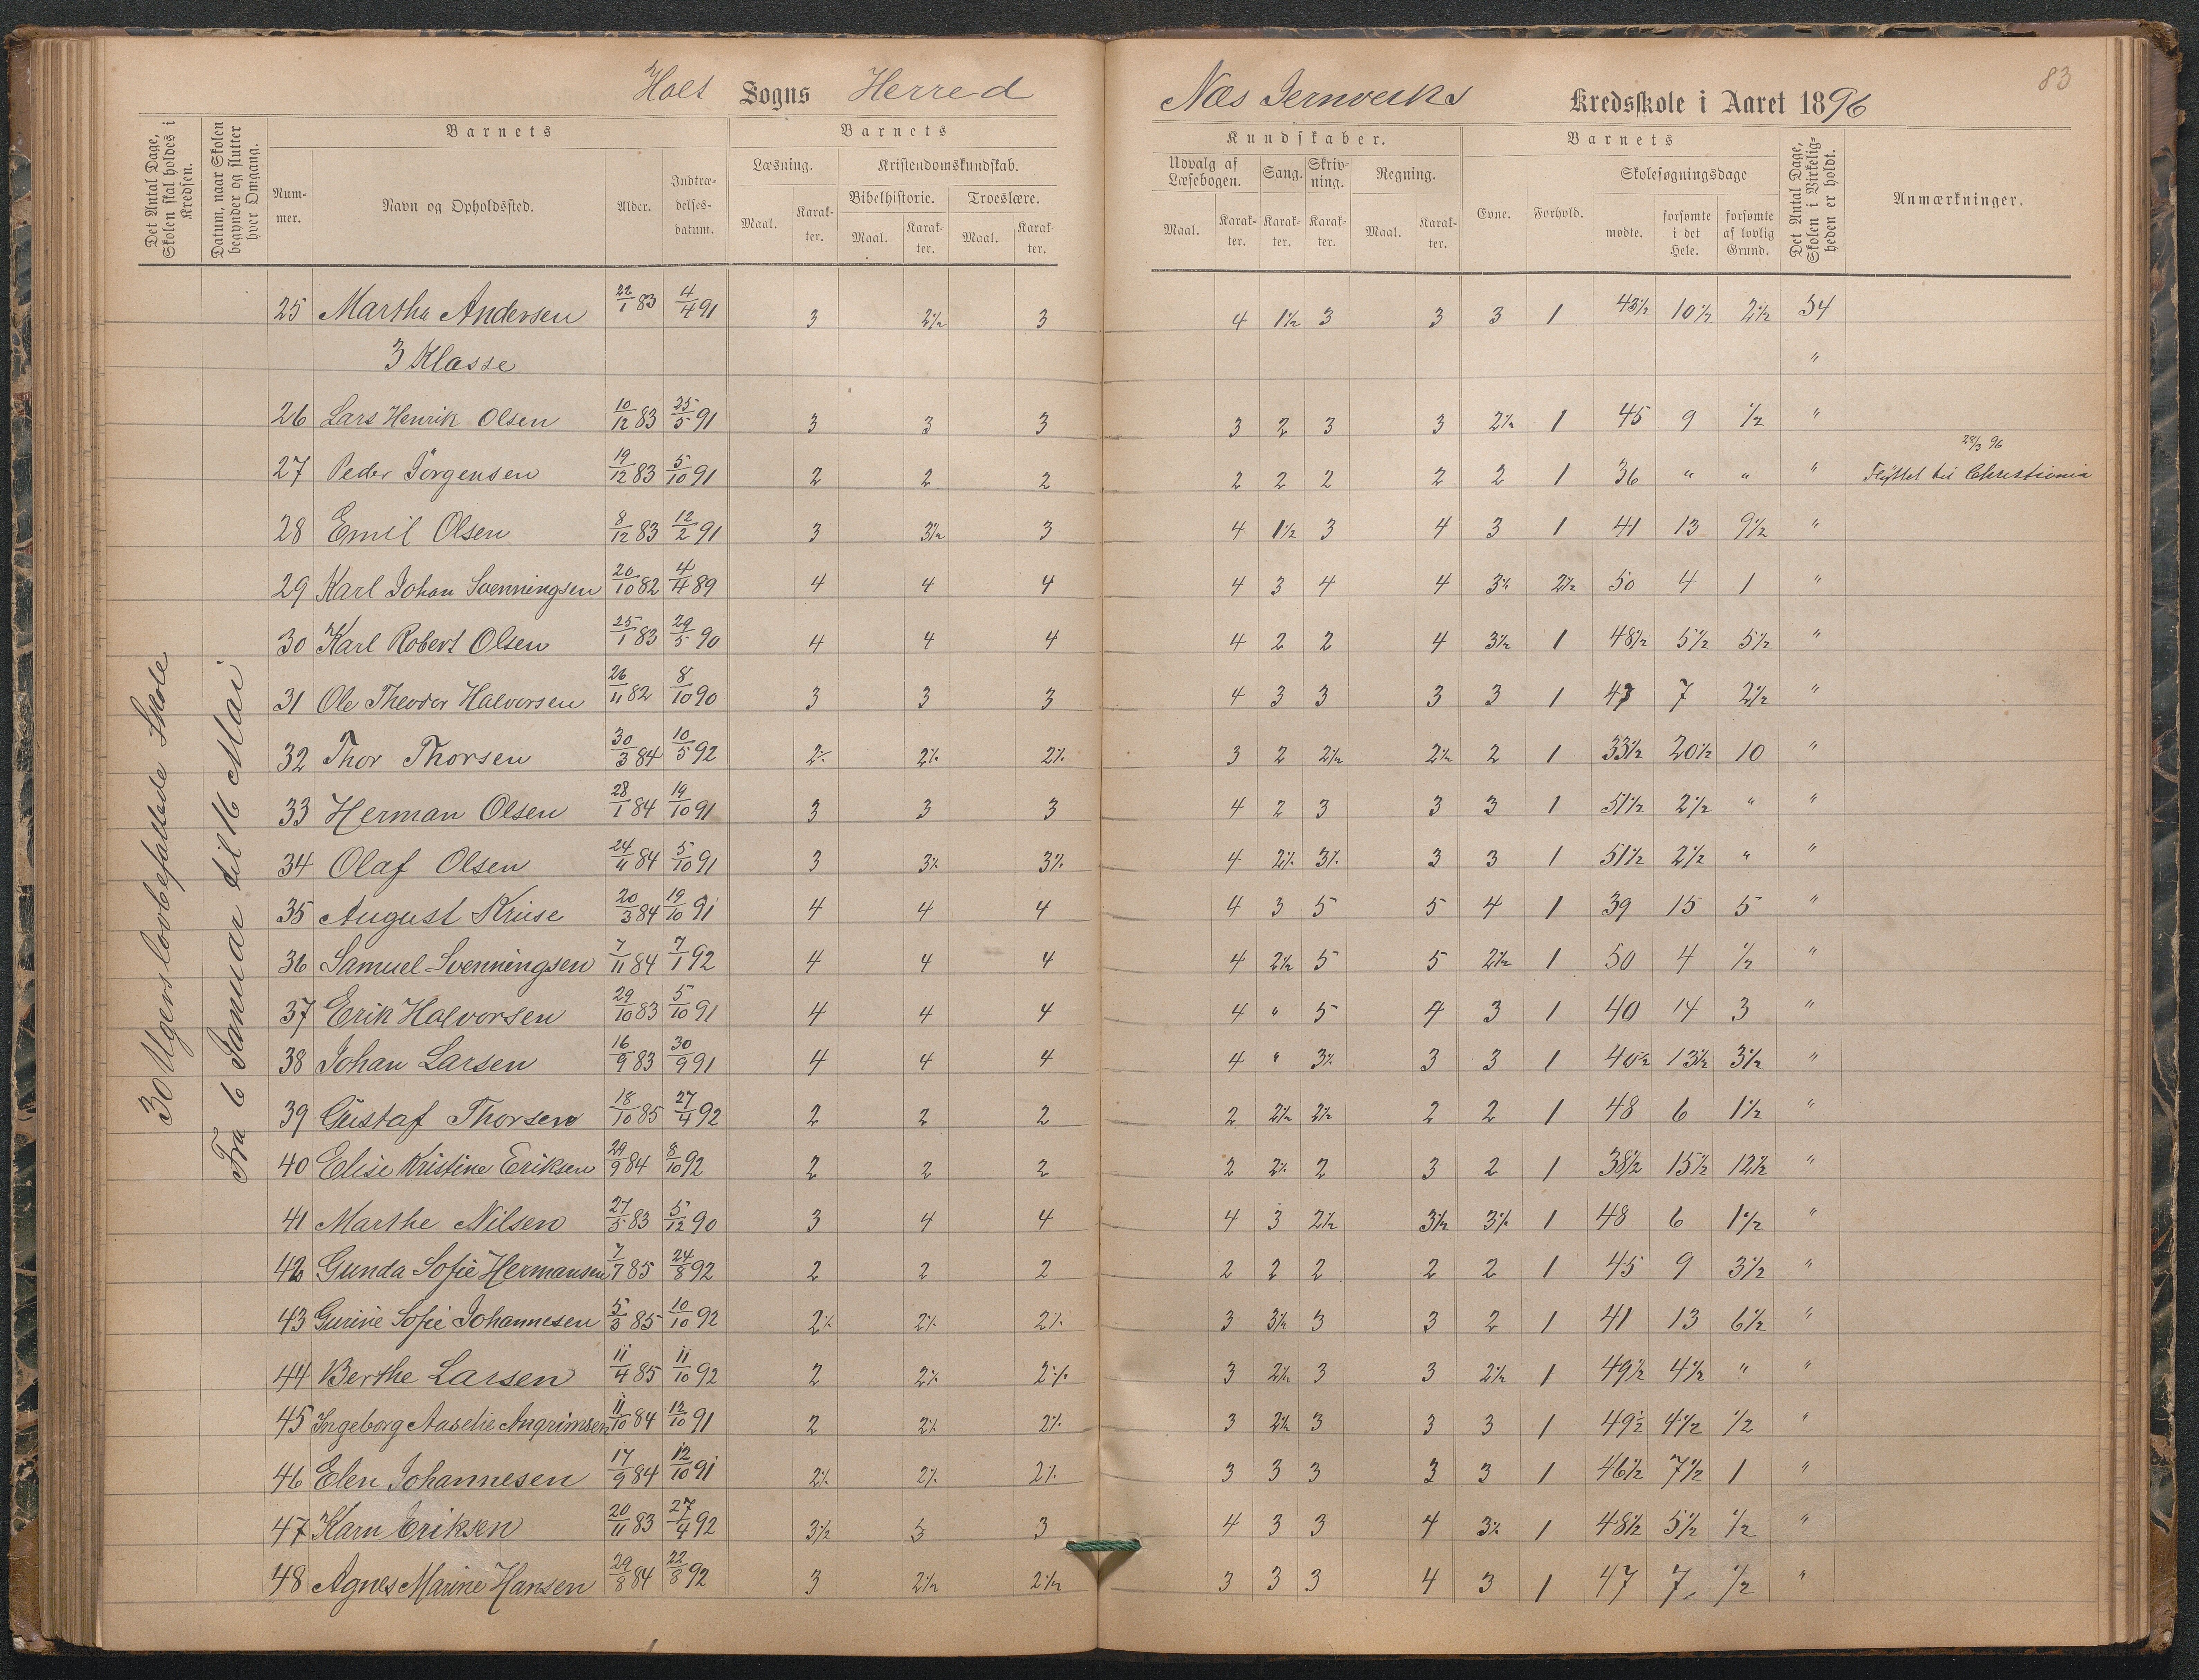 Holt Sogns Herred
Næs Jernverks Kredsskole i Aaret 1896
83
Det Antal Dage, Skolen skal holdes i Kredsen.
Datum, naar Skolen begynder og slutter hver Omgang.
Barnets
Nummer.
Navn og Opholdssted.
Alder.
Indtrædelsesdatum.
Barnets
Læsning.
Maal.
Karakter.
Kristendomskundskab.
Bibelhistorie.
Maal.
Karakter.
Troeslære.
Maal.
Karakter.
Kundskaber.
Udvalg af Læsebogen.
Maal.
Karakter.
Sang.
Karakter.
Skrivning.
Karakter.
Regning.
Maal.
Karakter.
Barnets
Evne.
Forhold.
Skolesøgningsdage
mødte.
forsømte i det Hele.
forsømte af lovlig Grund.
Det Antal Dage, Skolen i Virkeligheden er holdt.
Anmærkninger.
30 Ugers lovbefalede Skole
Fra 6 Januar til 16 Mai
25 Martha Andersen 22/1 83 4/4 91 3 2½ 3 4 1½ 3 3 3 1 43½ 10½ 2½ 54
3 Klasse "
26 Lars Henrik Olsen 10/12 83 25/5 91 3 3 3 3 2 3 3 2½ 1 45 9 ½ "
27 Peder Jörgensen 19/12 83 5/10 91 2 2 2 2 2 2 2 2 1 36 " " " 28/3 96 Flyttet til Christiania
28 Emil Olsen 8/12 83 12/2 91 3 3½ 3 4 1½ 3 4 3 1 41 13 9½ "
29 Karl Johan Svenningsen 20/10 82 4/4 89 4 4 4 4 3 4 4 3½ 2½ 50 4 1 "
30 Karl Robert Olsen 25/1 83 29/5 90 4 4 4 4 2 2 4 3½ 1 48½ 5½ 5½ "
31 Ole Theodor Halvorsen 26/11 82 8/10 90 3 3 3 4 3 3 3 3 1 47 7 2½ "
32 Thor Thorsen 30/3 84 10/5 92 2½ 2½ 2½ 3 2 2½ 2½ 2 1 33½ 20½ 10 "
33 Herman Olsen 28/1 84 19/10 91 3 3 3 4 2 3 3 3 1 51½ 2½ " "
34 Olaf Olsen 24/11 84 5/10 91 3 3½ 3½ 4 2½ 3½ 3 3 1 51½ 2½ " "
35 August Kruse 20/3 84 19/10 91 4 4 4 4 3 5 5 4 1 39 15 5 "
36 Samuel Svenningsen 7/11 84 7/1 92 4 4 4 4 2½ 5 5 2½ 1 50 4 ½ "
37 Erik Halvorsen 29/10 83 5/10 91 4 4 4 4 " 5 4 3 1 40 14 3 "
38 Johan Larsen 16/9 83 30/9 91 4 4 4 4 " 3½ 3 3 1 40½ 13½ 3½ "
39 Gustaf Thorsen 18/10 85 27/4 92 2 2 2 2 2½ 2½ 2 2 1 48 6 1½ "
40 Elise Kristine Eriksen 29/9 84 8/10 92 2 2 2 2 2½ 2 3 2 1 38½ 15½ 12½ "
41 Marthe Nilsen 27/5 83 5/12 90 3 4 4 4 3 2½ 3½ 3½ 1 48 6 1½ "
42 Gunda Sofie Hermansen 7/7 85 24/8 92 2 2 2 2 2 2 2 2 1 45 9 3½ "
43 Gurine Sofie Johannesen 5/3 85 10/10 92 2½ 2½ 2½ 3 3½ 3 3 2 1 41 13 6½ "
44 Berthe Larsen 11/4 85 11/10 92 2 2½ 2½ 3 2½ 3 3 2½ 1 49½ 4½ " "
45 Ingeborg Angrimsen 11/10 84 12/10 91 2 2½ 2½ 3 2½ 3 3 3 1 49½ 4½ ½ "
46 Elen Johannesen 17/9 84 12/10 91 2½ 2½ 2½ 3 3 3 3 3 1 46½ 7½ 1 "
47 Karn Eriksen 20/11 83 27/4 92 3½ 3 3 4 3 3 4 3½ 1 48½ 5½ ½ "
48 Agnes Marine Hansen 29/8 84 22/8 92 3 2½ 2½ 3 3 3 4 3 1 47 7 ½ "